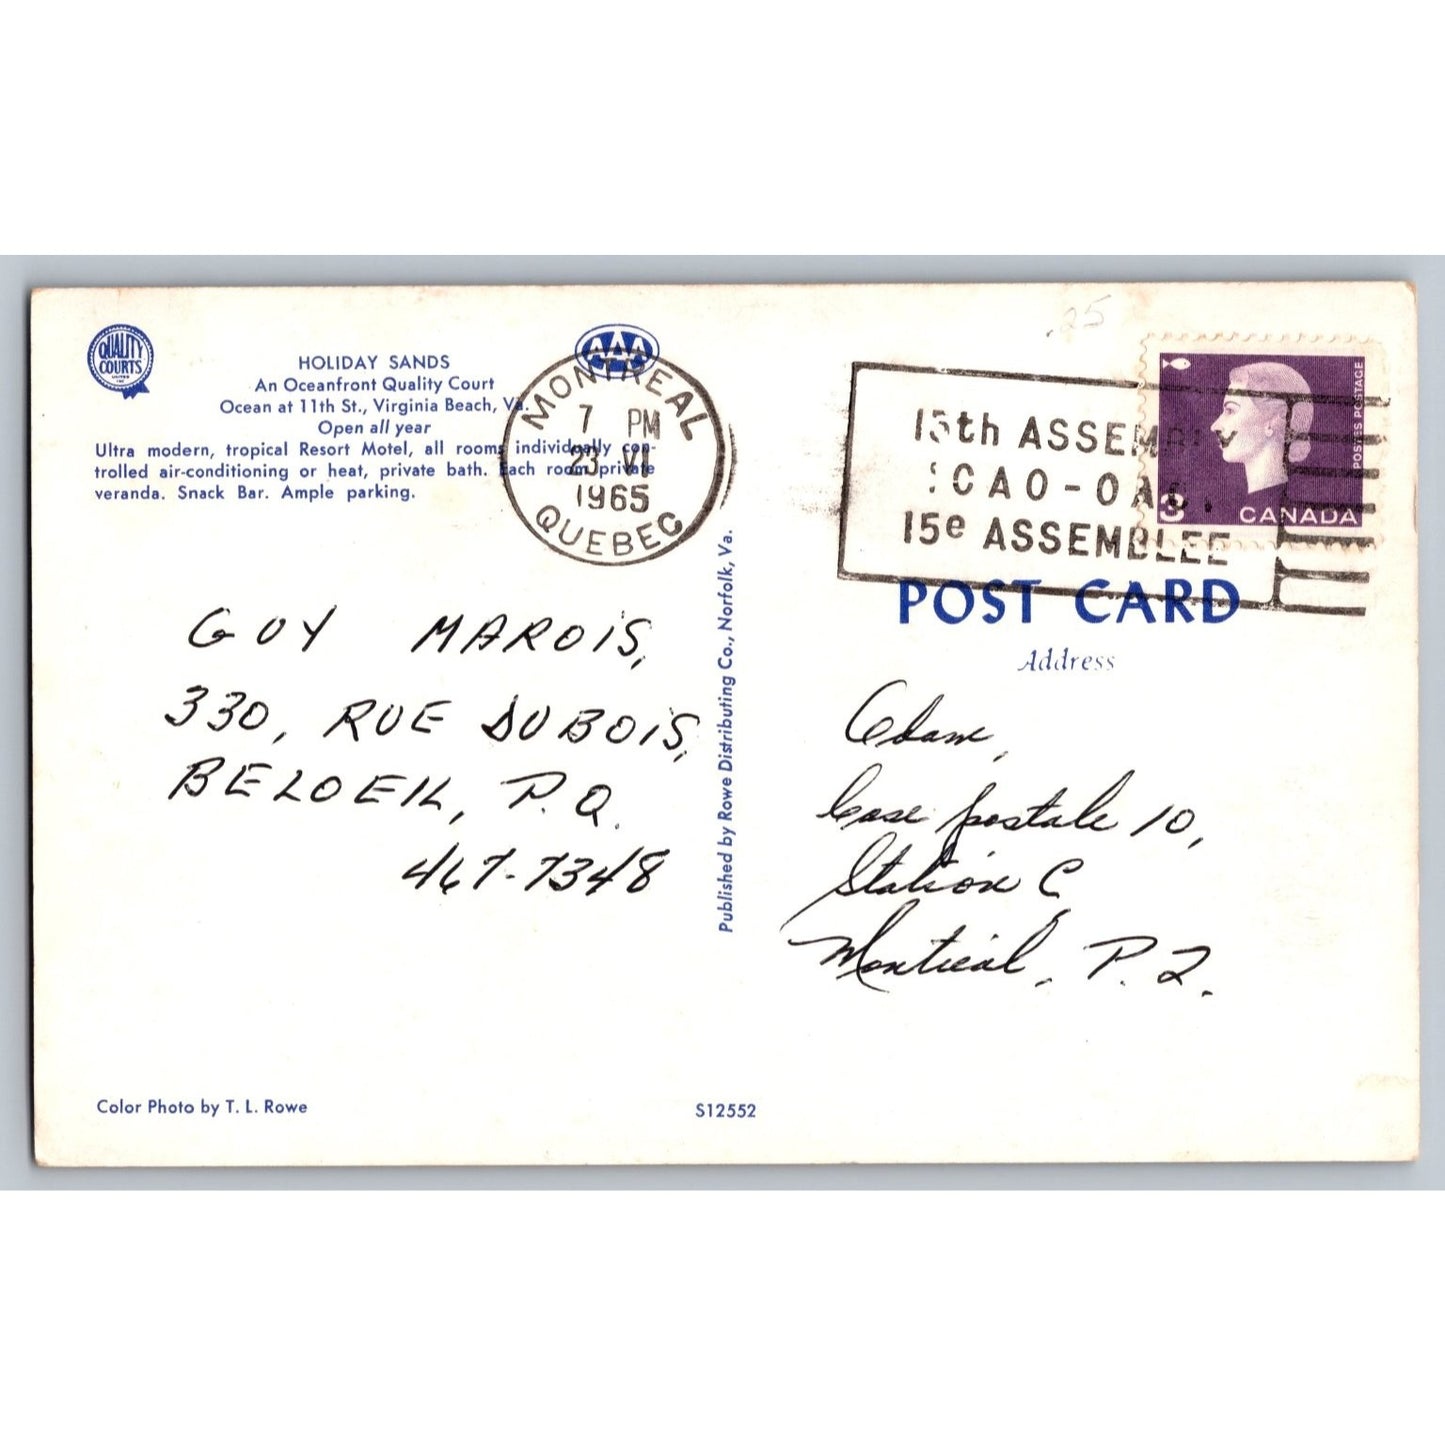 .25
QUALITY
COURTS
UNITED
INC
HOLIDAY SANDS
An Oceanfront Quality Court
Ocean at 11th St., Virginia Beach, Va.
Open all year
Ultra modern, tropical Resort Motel, all rooms individually con-
trolled air-conditioning or heat, private bath. Each room private
veranda. Snack Bar. Ample parking.
AAA
MONTREAL
7 PM
23 VI
1965
QUEBEC
GUY MAROIS,
330, RUE DUBOIS,
BELOEIL, P.Q.
467-7348
Color Photo by T. L. Rowe
Published by Rowe Distributing Co., Norfolk, Va.
S12552
15th ASSEMBLY
ICAO-OACI
15e ASSEMBLEE
POSTES POSTAGE
3
CANADA
POST CARD
Address
Case postale 10,
Station C
Montréal, P.Q.